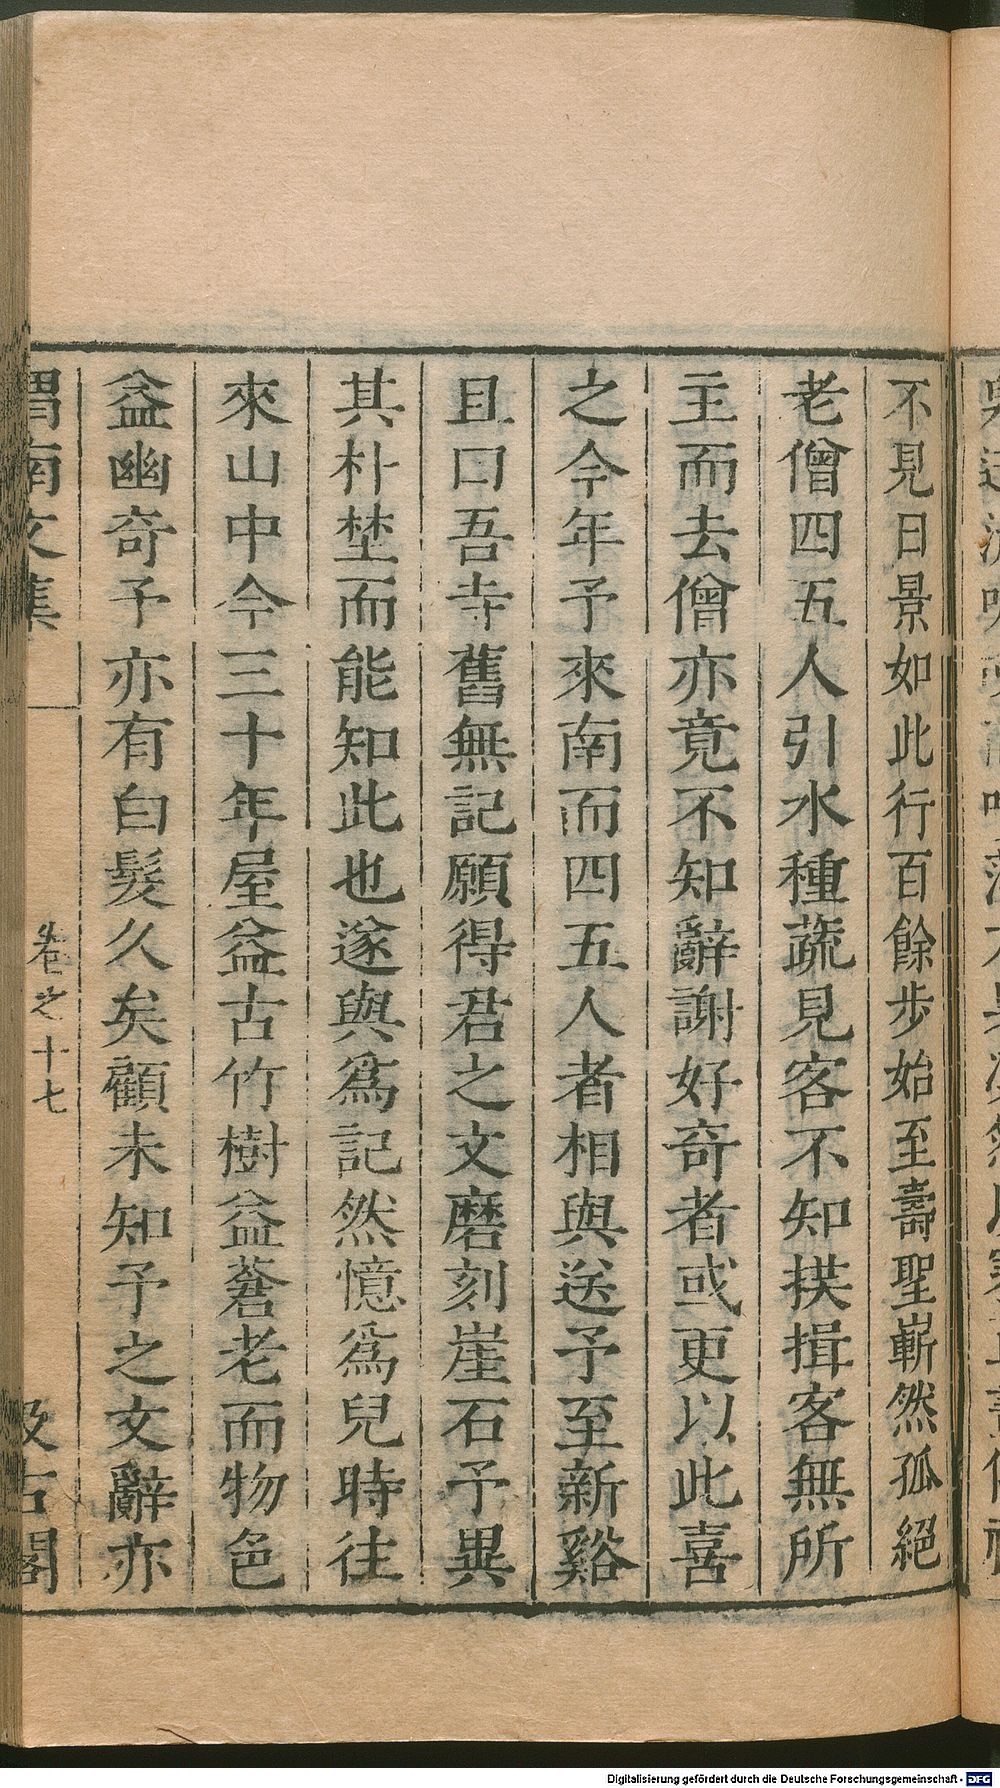 不見日景如此行百餘步始至壽聖嶄然孤絕
老僧四五人引水種蔬見客不知拱揖客無所
主而去僧亦竟不知辭謝好奇者或更以此喜
之今年予來南而四五人者相與送予至新谿
且曰吾寺舊無記願得君之文磨刻崖石予異
其朴埜而能知此也遂與爲記然憶爲兒時往
來山中今三十年屋益古竹樹益蒼老而物色
益幽奇予亦有白髮久矣顧未知予之文辭亦
渭南文集 卷之十七 汲古閣
Digitalisierung gefördert durch die Deutsche Forschungsgemeinschaft - DFG